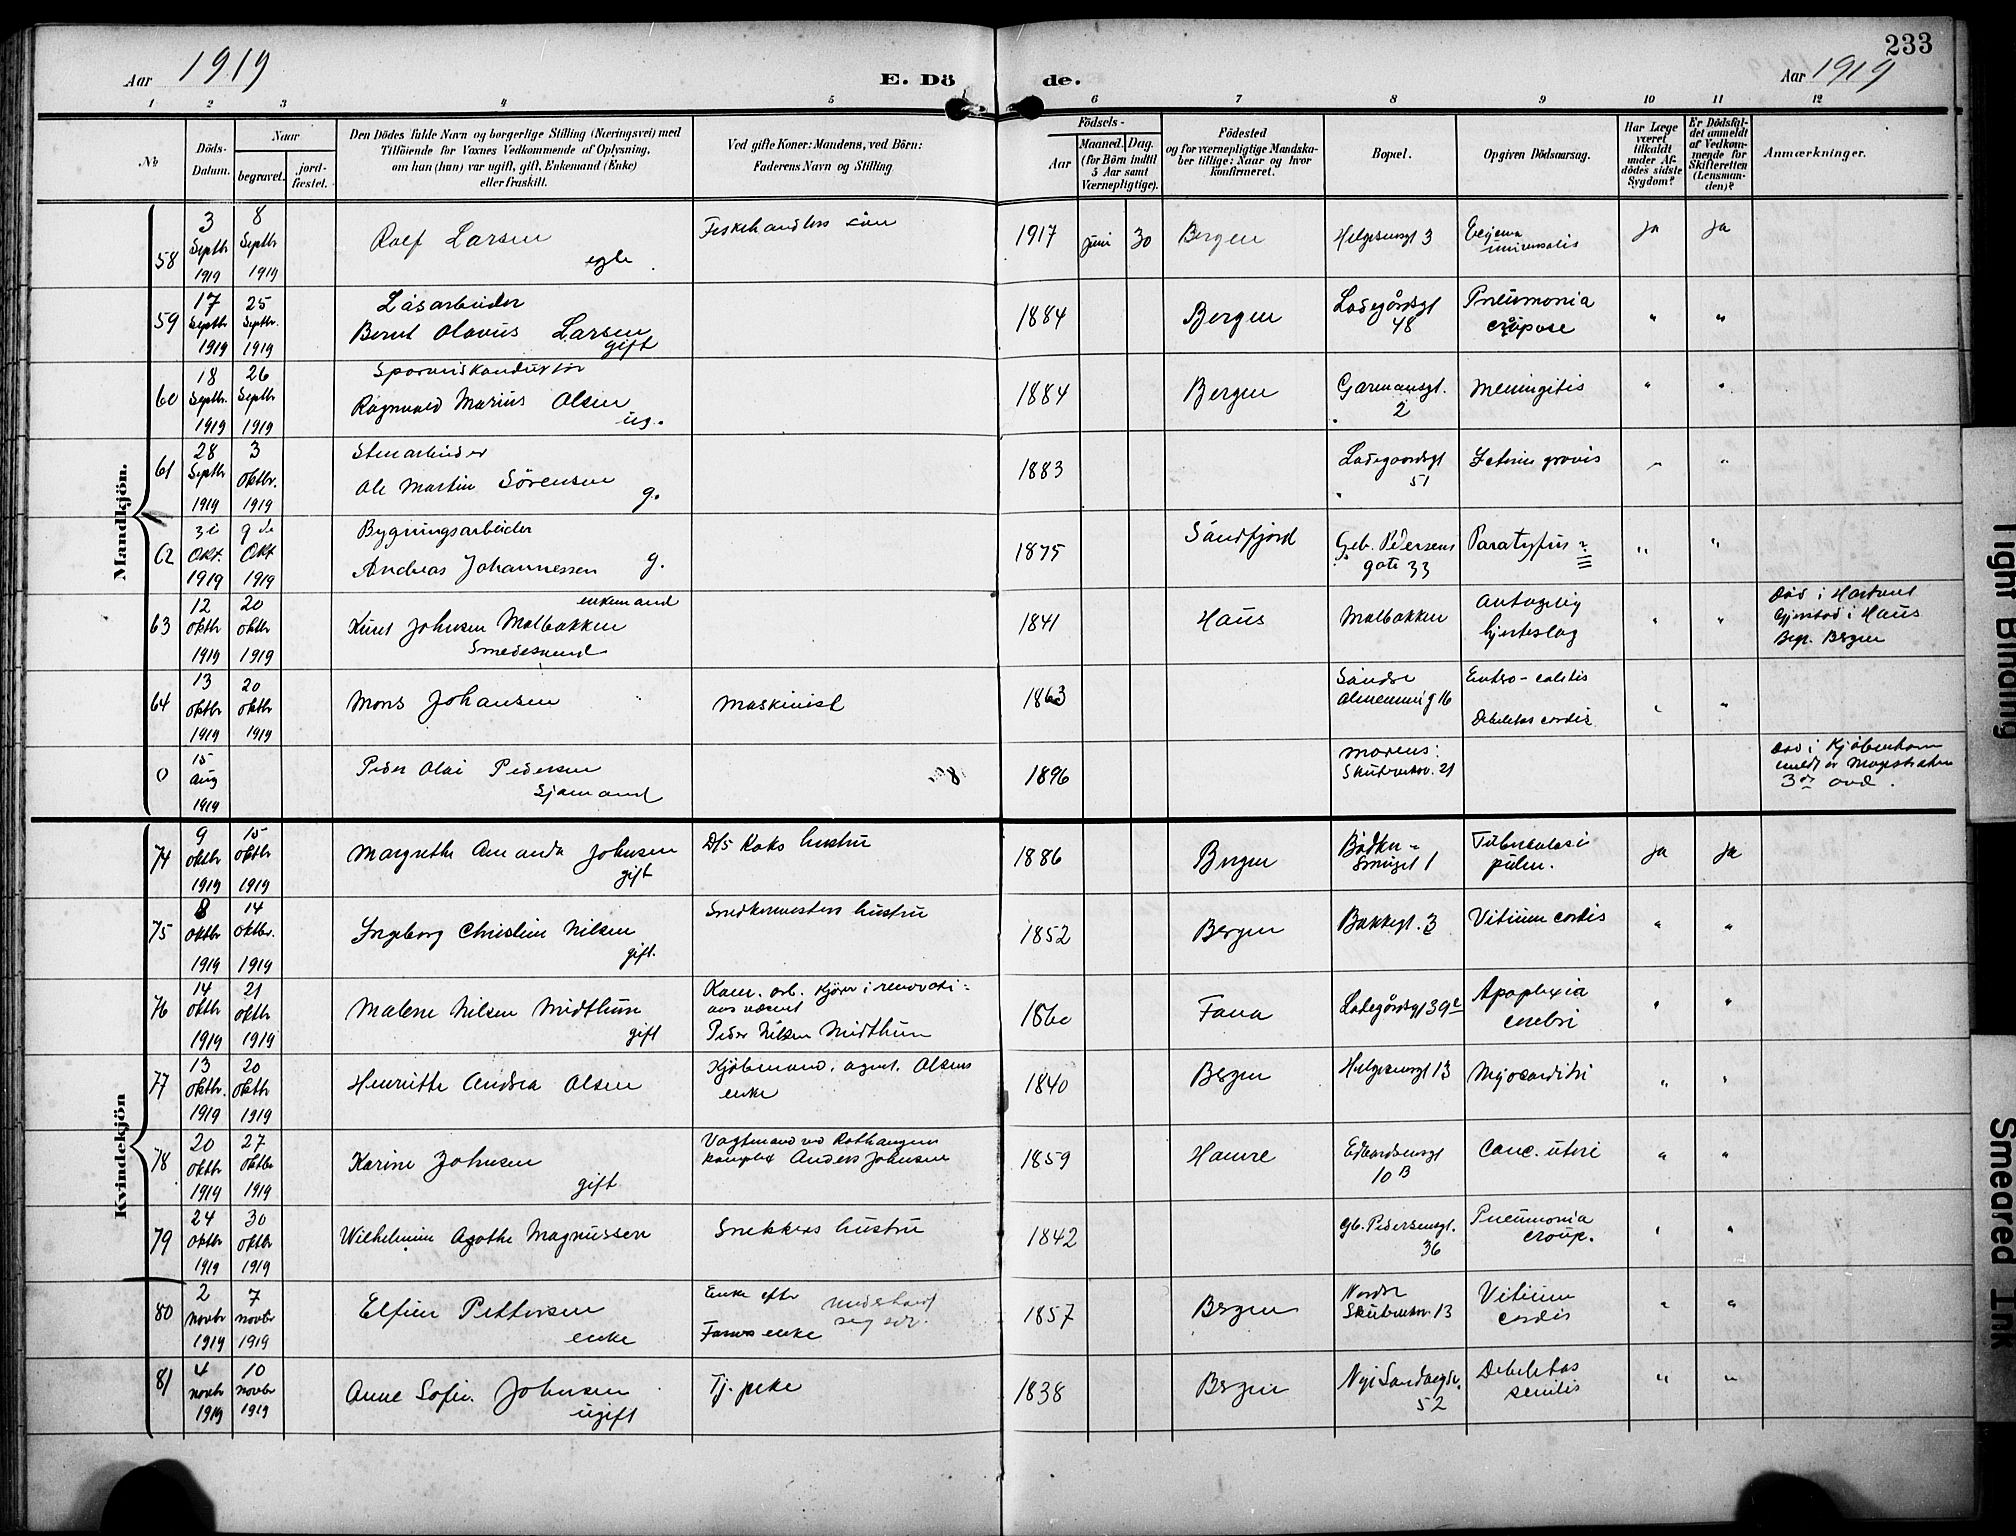 233
Aar 1919
E. Dö de.
Aar 1919
1 2 3 4 5 6 7 8 9 10 11 12
No
Döds-
Datum.
Naar
begravet.
jord-
fæstet.
Den Dödes fulde Navn og borgerlige Stilling (Næringsvei) med
Tilföiende for Voxnes Vedkommende af Oplysning,
om han (hun) var ugift, gift, Enkemand (Enke)
eller fraskilt.
Ved gifte Koner: Mandens, ved Börn:
Faderens Navn og Stilling
Födsels-
Aar
Maaned. Dag.
(for Börn indtil
5 Aar samt
Værnepligtige).
Födested
og for værnepligtige Mandska-
ber tillige: Naar og hvor
konfirmeret.
Bopæl.
Opgiven Dödsaarsag.
Har Læge
været
tilkaldt
under Af-
dödes sidste
Sygdom?
Er Dödsfal-
det anmeldt
af Vedkom-
mende for
Skifteretten
(Lensman-
den)?
Anmærkninger.
Mandkjön.
58
3 Septbr 1919
8 Septbr 1919
Rolf Larsen
egte
Fiskehandlers sön
1917 juni 30
Bergen
Helgesensgt 3
universalis
ja ja
59
17 Septbr 1919
25 Septbr. 1919
Låsarbeider
Bernt Olavus Larsen
gift
1884
Bergen
Ladegårdsgt
48
Pneumonia
" "
60
18 Septbr. 1919
26 Septbr 1919
Ragnvald Marius Olsen
ug.
1884
Bergen
Garmansgt.
2
Meningitis
" "
61
28 Septbr 1919
3 Oktbr. 1919
Stenarbeider
Ole Martin Sörensen
g.
1883
Ladegaardsgt
51
gravis
" "
62
3 Okt. 1919
9 de Okt 1919
Bygningsarbeider
Andreas Johannessen g.
1875
Søndfjord
Geb. Pedersens
gate 33
Paratyfus ?
" "
63
12 oktbr 1919
20 oktbr 1919
enkemand
Knut Johnsen Molbakken
Smedesvend
1841
Haus
Molbakken
Antagelig
hjerteslag
" "
Död i
Gjerstad i Haus
Begr. Bergen
64
13 oktbr 1919
20 oktbr 1919
Mons Johansen
Maskinist
1863
Söndre
almenning 16
Entero-colitis
Debilitas cordis
" "
0
15 Aug 1919
Peder Olai Pedersen
Sjømand
8
1896
Skuteviksv. 21
död i Kjöbenhavn
meldt av Magistraten
3die avd.
Kvindekjön
74
9 oktbr 1919
15 oktbr 1919
Margrethe Amanda Johnsen
gift
D/S Koks hustru
1886
Bergen
Bødker-
smuget 1
pulm.
ja ja
75
8 oktbr 1919
14 oktbr. 1919
Ingeborg Christine Nilsen
gift.
Snedkermesters hustru
1852
Bergen
Bakkegt. 3
Vitium cordis
" "
76
14 oktbr 1919
21 oktbr 1919
Malene Nilsen Midthun
gift
Kom. arb. Kjører i renovati=
Peder Nilsen Midthun
1860
Fana
Ladegårdsgt 39
Apoplexia
cerebri
" "
77
13 oktbr. 1919
20 oktbr 1919
Henriette Andrea Olsen
Kjøbmand, agent. Olsens
enke
1840
Bergen
Helgesensgt 13
" "
78
20 oktbr 1919
27 oktbr 1919
Karine Johnsen
gift
Anders Johnsen
1859
Hamre
Edvardsensgt
10 B
Canc. uteri
" "
79
24 oktbr 1919
30 oktbr 1919
Wilhelmine Agathe Magnussen
Snekkers hustru
1842
Gb. Pedersensgt.
36
Pneumonia
croup.
" "
80
2 novbr 1919
7 novbr 1919
Elfine Pettersen
enke
Enke efter
1857
Bergen
Nordre
Skuteviksv. 13
Vitium
cordis
" "
81
4 novbr 1919
10 novbr 1919
Anne Sofie Johnsen
ugift
Tj. pike
1838
Bergen
Nye Sandviksv.
52
Debilitas
senilis
" "
Tight Binding
Smeared Ink